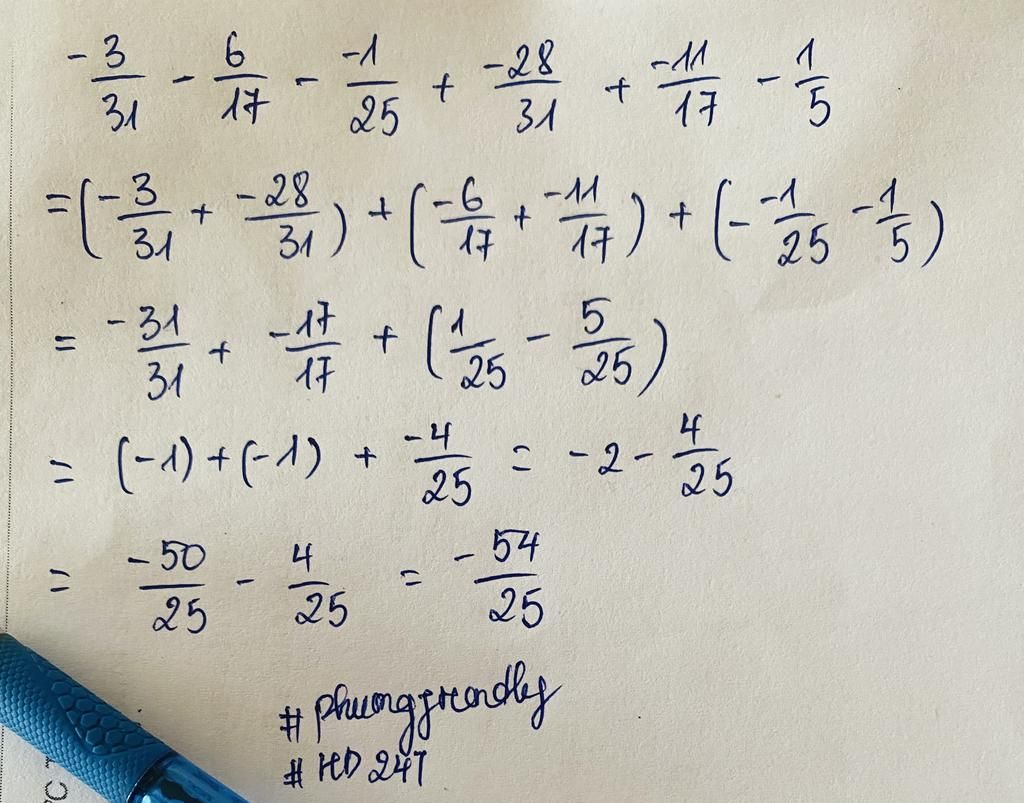 -3/31 - 6/17 - -1/25 + -28/31 + -11/17 - 1/5
= (-3/31 + -28/31) + (-6/17 + -11/17) + (- -1/25 - 1/5)
= -31/31 + -17/17 + (1/25 - 5/25)
= (-1) + (-1) + -4/25 = -2 - 4/25
= -50/25 - 4/25 = -54/25
# HD 247